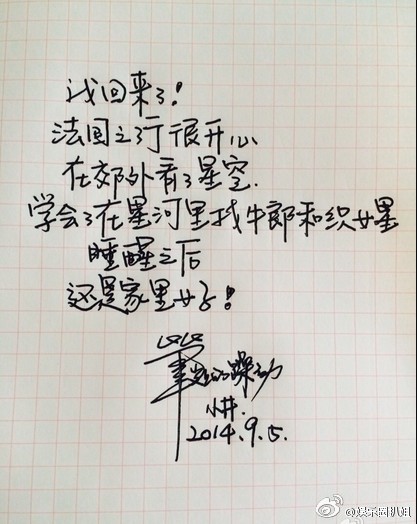 我回来了!
法国之行很开心
在郊外看了星空.
学会了在星河里找牛郎和织女星
睡醒之后
还是家里好!
小井.
2014.9.5.